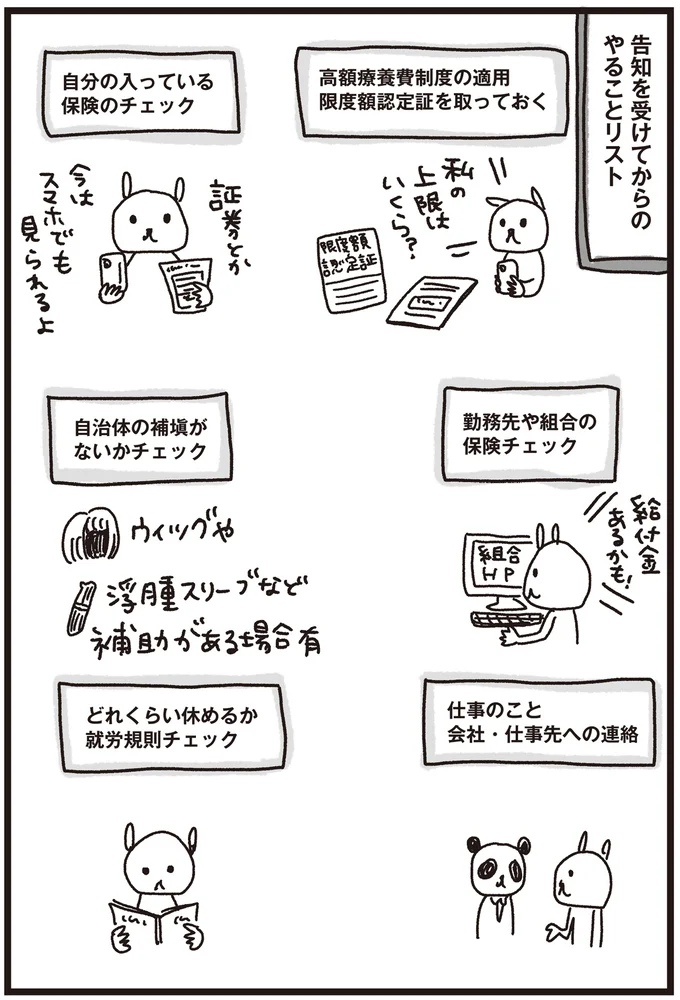 告知を受けてからの
やることリスト
高額療養費制度の適用
限度額認定証を取っておく
私の
上限は
いくら?
限度額
認定証
自分の入っている
保険のチェック
証券とか
今は
スマホでも
見られるよ
勤務先や組合の
保険チェック
給付金
あるかも!
組合
HP
自治体の補塡が
ないかチェック
ウィッグや
浮腫スリーブなど
補助がある場合有
仕事のこと
会社・仕事先への連絡
どれくらい休めるか
就労規則チェック